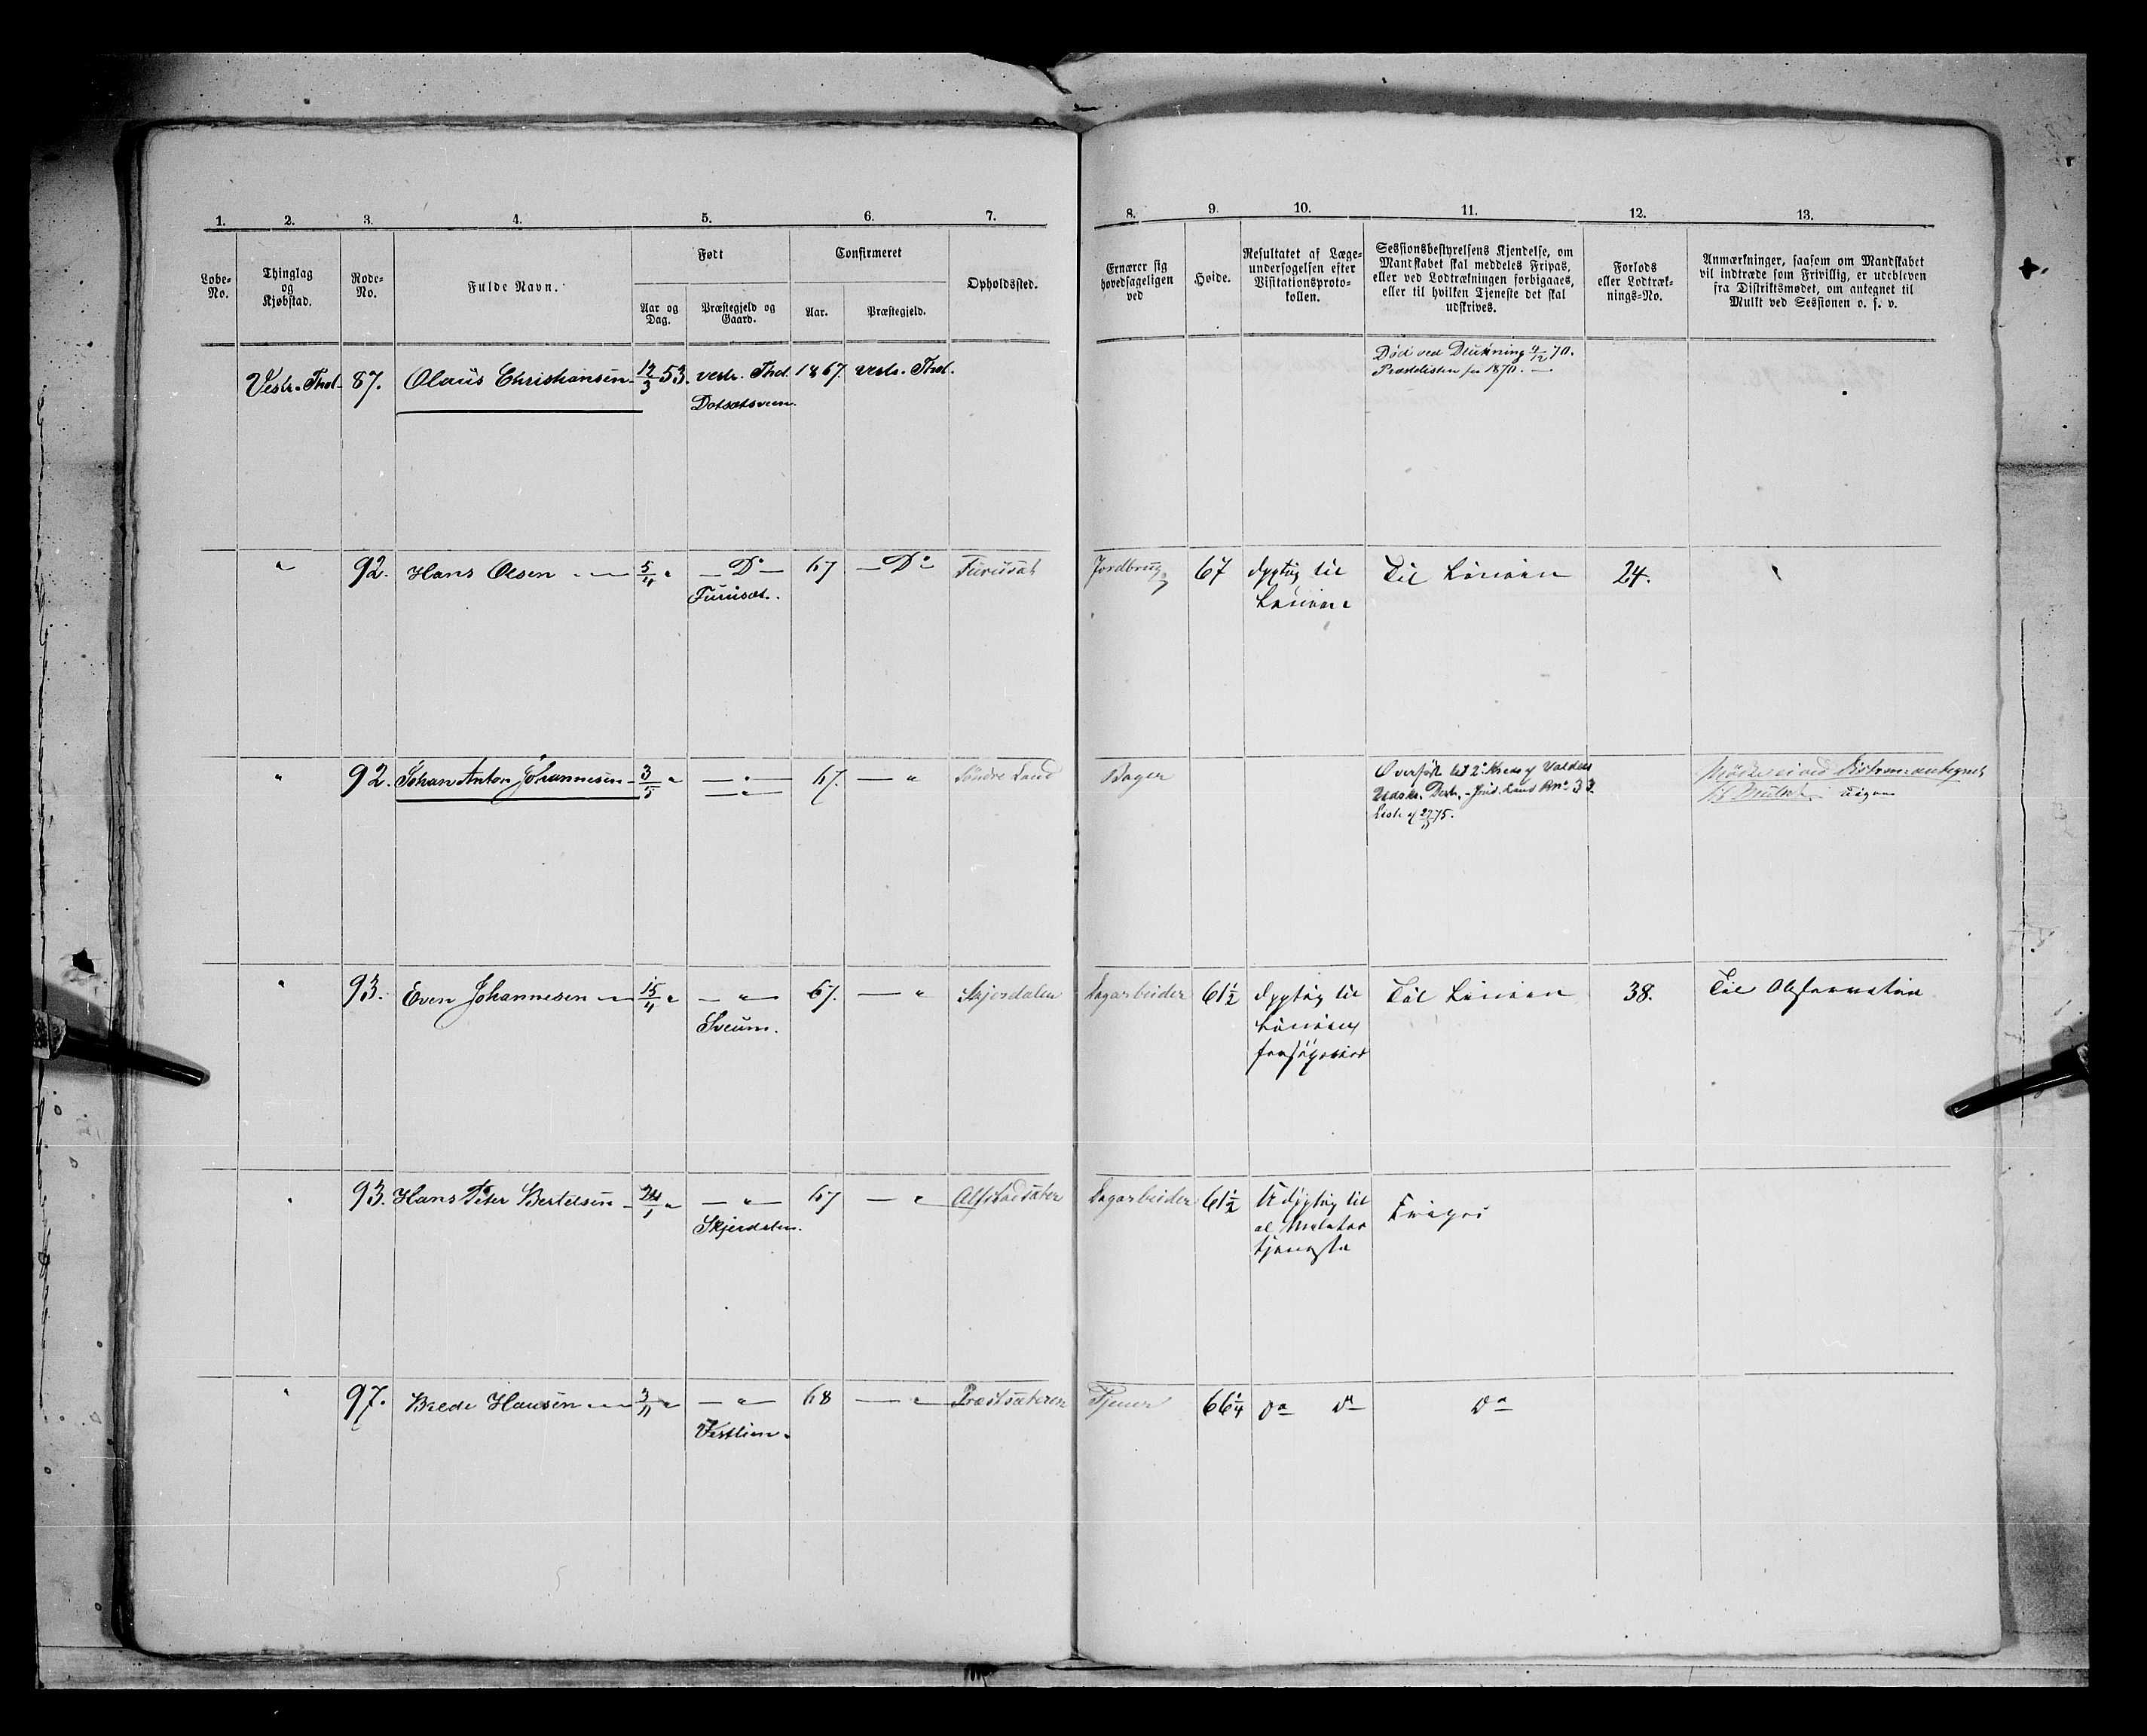 1. 2. 3. 4. 5. 6. 7. 8. 9. 10. 11. 12. 13.
Løbe-No.
Thinglag og Kjøbstad.
Rode-No.
Fulde Navn.
Født
Aar og Dag.
Præstegjeld og Gaard.
Confirmeret
Aar.
Præstegjeld.
Opholdssted.
Ernærer sig hovedsageligen ved
Høide.
Resultatet af Læge-undersøgelsen efter Visitationsproto-kollen.
Sessionsbestyrelsens Kjendelse, om Mandskabet skal meddeles Fripas, eller ved Lodtrækningen forbigaaes, eller til hvilken Tjeneste det skal udskrives.
Forlods eller Lodtræk-nings-No.
Anmærkninger, saasom om Mandskabet vil indtræde som Frivillig, er udebleven fra Distriktsmødet, om antegnet til Mulkt ved Sessionen o. s. v.
Vestr. Thot. 87. Olaus Christiansen 12/3 53. vestr. Thot. 1867. vestr. Thot.
Død ved Drukning 4/12 70.
Præstelisten for 1870.
" 92. Hans Olsen 5/4 " — Do — 67 — Do Furusæt Jordbrug 67 dygtig til Til Linien 24.
Furusæt. Linien
" 92. Johan Anton Johannesen 3/5 " — " — 67. — " Søndre Land Bager
Overført til 2. Kreds af Valders
Udskr. Distr. - Sønd. Land Rno 33.
Liste af 75.
Mødte ei ved Distr. antegnet
til Mulct
" 93. Even Johannesen 15/4 " — " — 67. — " Skjerdalen Dagarbeider 61½ dygtig til Til Linien 38. Til Observation
Sveum. Linien
forsøgsviis
" 93. Hans Peter Bertelsen 24/1 " — " — 67 — " Alfstadsæter Dagarbeider 61½ Udygtig til Fripas
Skjerdalen. al Militær
tjeneste
" 97. Brede Hansen 3/11 " — " — 68 — " Præstsæteren Tjener 66¼ Do Do Do
Vestlien.